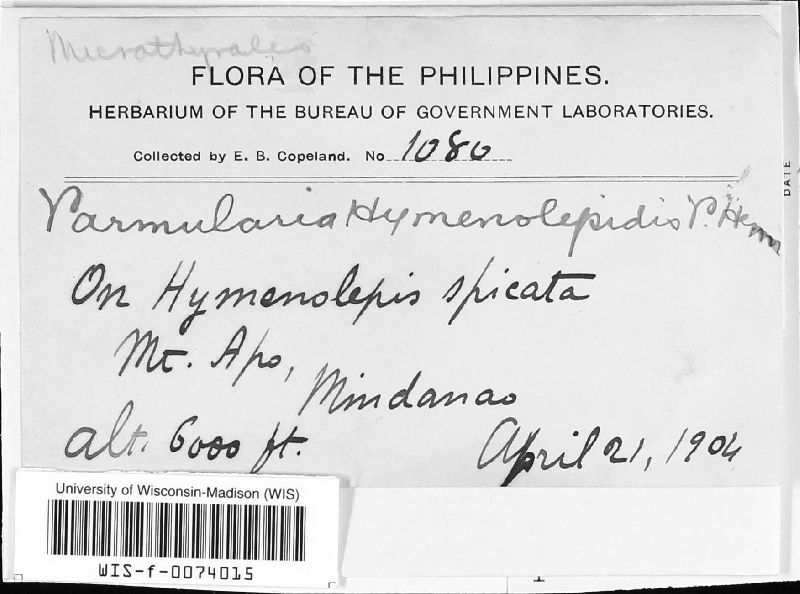 Microthyrales
FLORA OF THE PHILIPPINES.
HERBARIUM OF THE BUREAU OF GOVERNMENT LABORATORIES.
Collected by E. B. Copeland. No. 1080
Parmularia Hymenolepidis P. Henn
On Hymenolepis spicata
Mt. Apo,
Mindanao
alt. 6000 ft.
April 21, 1904
University of Wisconsin-Madison (WIS)
WIS-f-0074015
DATE